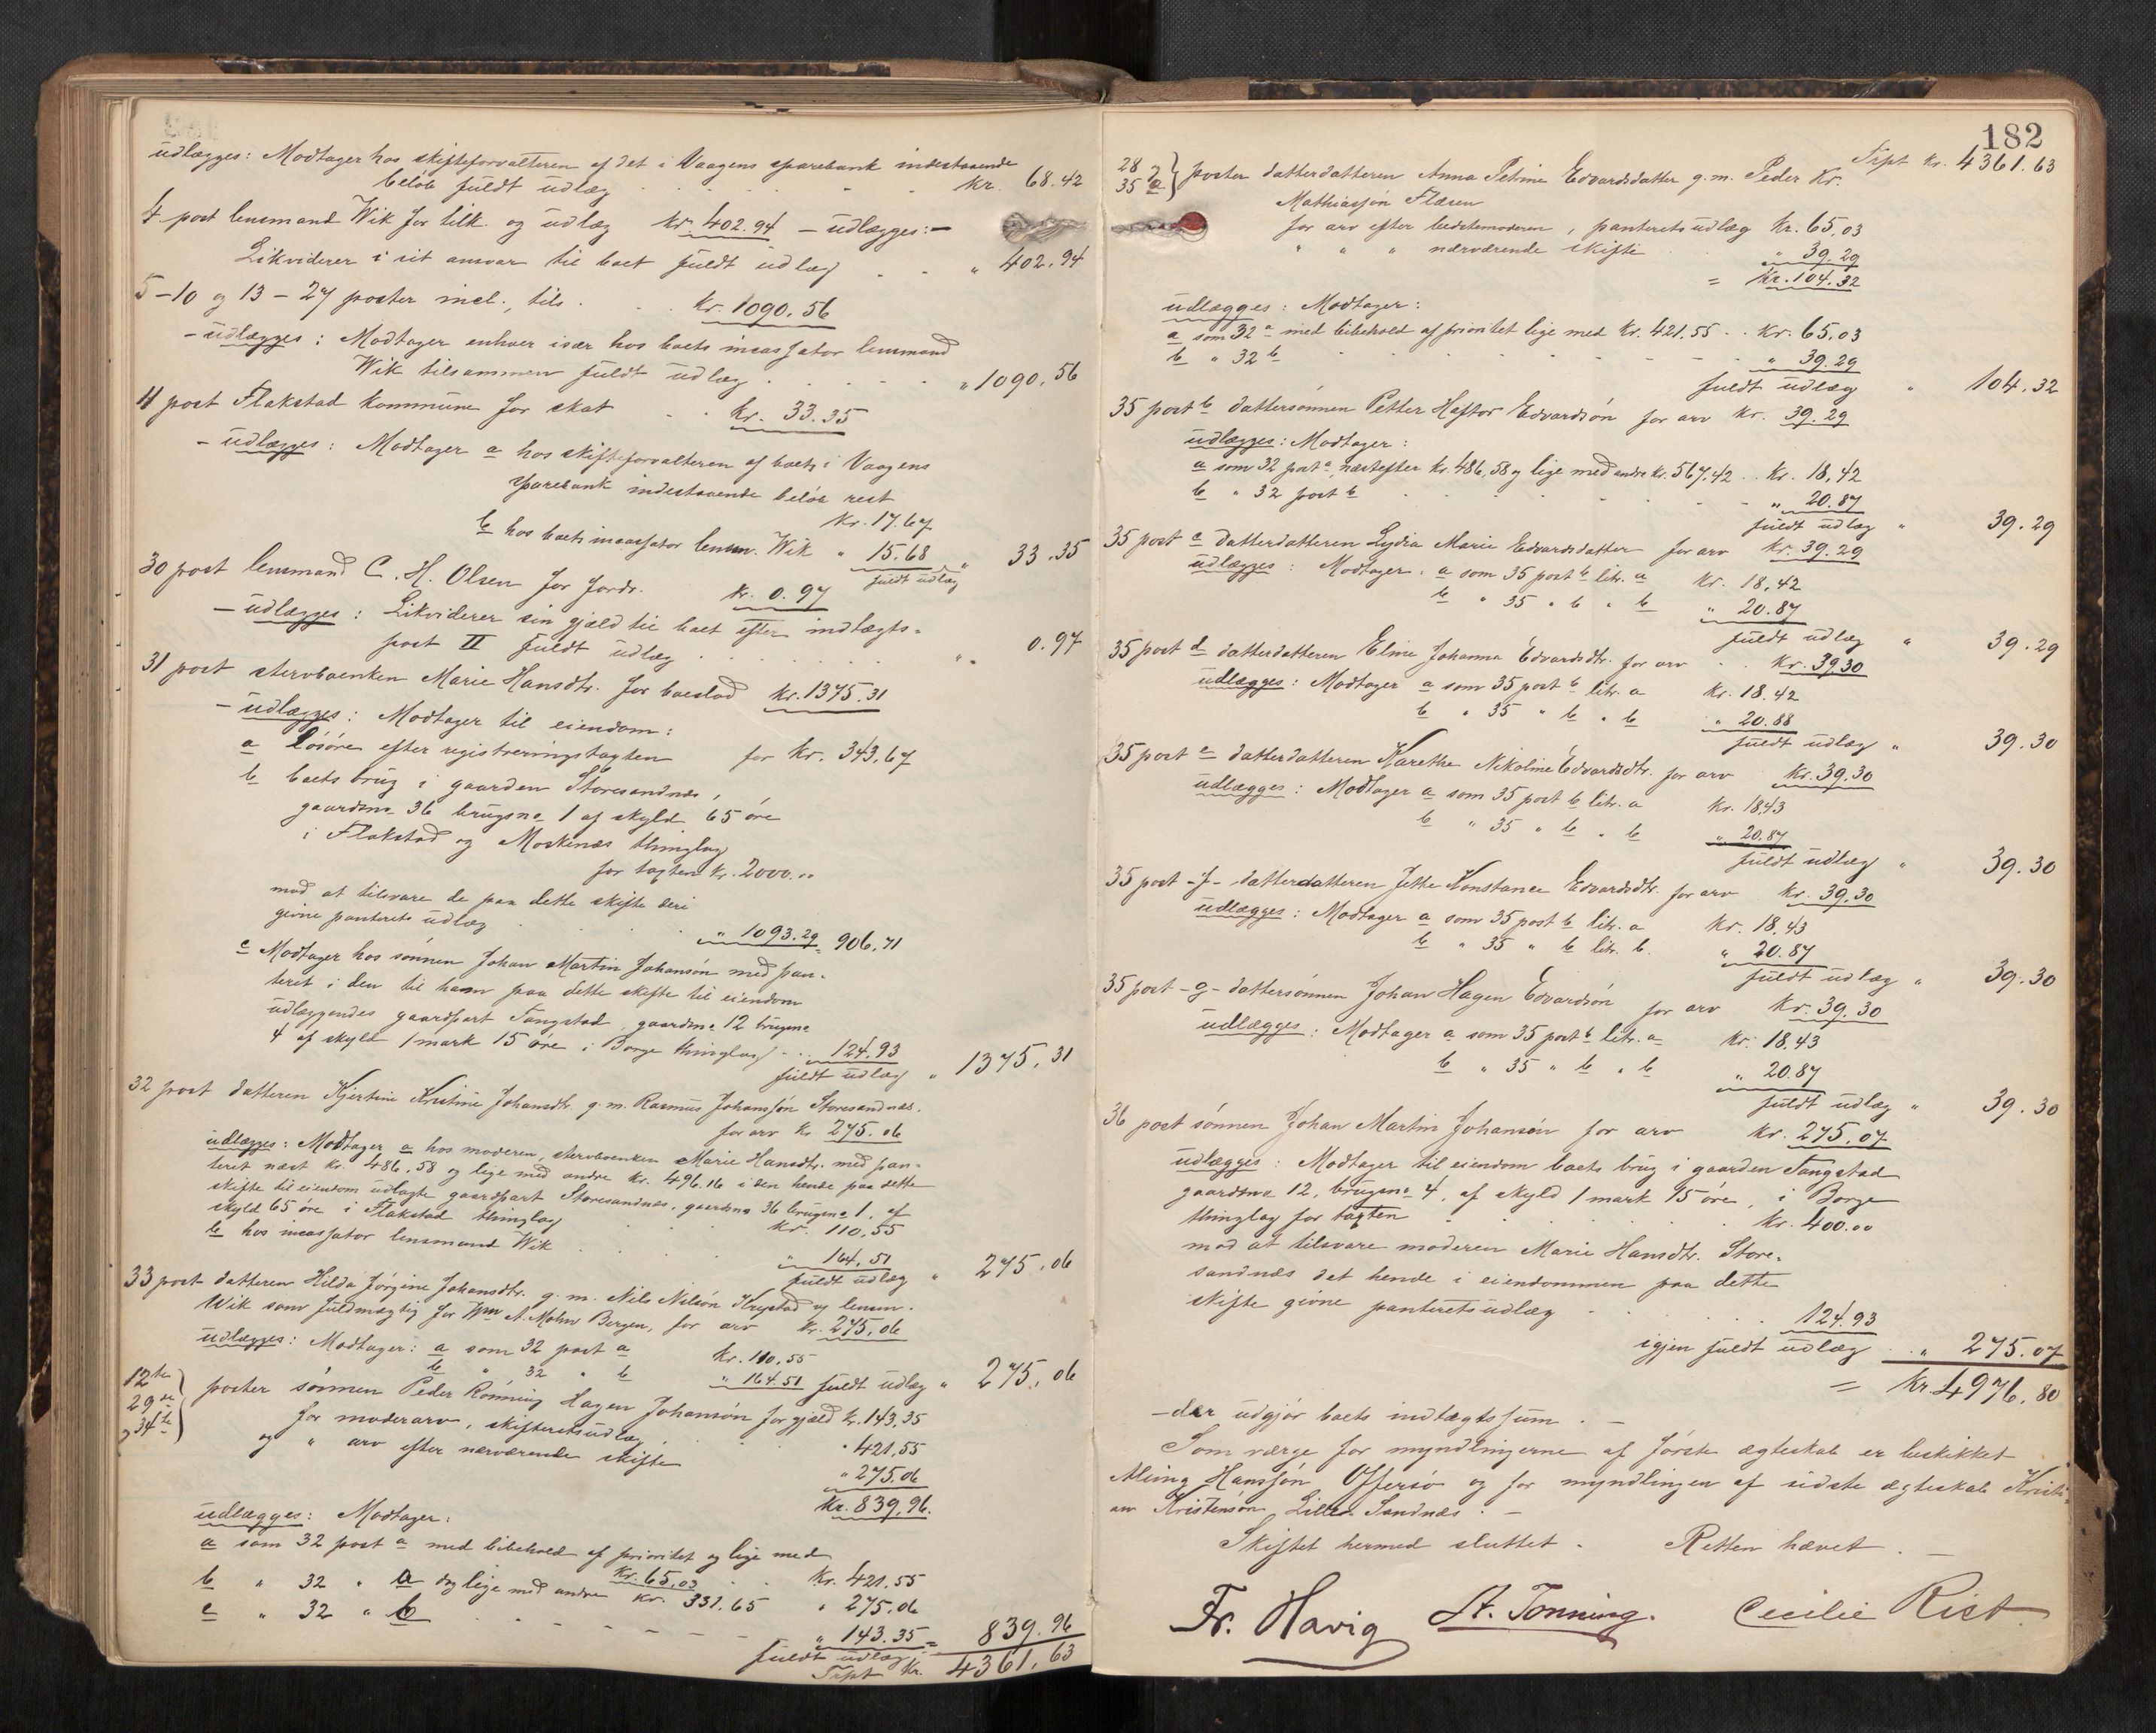 udlægges: Modtager hos skifteforvalteren af det i Vaagens sparebank indestaaende
beløb fuldt udlæg . . . kr. 68.42
4 post lensmand Wik for tilk. og udlæg kr. 402.94 – udlægges: –
Likviderer i sit ansvar til boet fuldt udlæg . . " 402.94
5–10 og 13–27 poster incl., tils. . . kr. 1090.56
– udlægges: Modtager enhver især hos boets incassator lensmand
Wik tilsammen fuldt udlæg . . . . . " 1090.56
11 post Flakstad kommune for skat . . kr. 33.35
– udlægges: Modtager a hos skifteforvalteren af boets i Vaagens
sparebank indestaaende beløb rest
kr. 17.67
b hos boets incassator lensm. Wik " 15.68 " 33.35
fuldt udlæg
30 post lensmand C. H. Olsen for jordr. kr. 0.97
– udlægges: Likviderer sin gjæld til boet efter indtægts-
post II fuldt udlæg . . . . . . " 0.97
31 post stervboenken Marie Hansdtr. for boeslod kr. 1375.31
– udlægges: Modtager til eiendom:
a løsøre efter registreringstaxten for kr. 343.67
b boets brug i gaarden Storesandnæs,
gaardsno 36 brugsno 1 af skyld 65 øre
i Flakstad og Moskenæs thinglag
for taxten kr. 2000.00
mod at tilsvare de paa dette skifte deri
givne panterets udlæg . . . . " 1093.29 = 906.71
c Modtager hos sønnen Johan Martin Johansøn med pan-
teret i den til ham paa dette skifte til eiendom
udlæggendes gaardpart Tangstad, gaardsno 12 brugsno
4 af skyld 1 mark 15 øre i Borge thinglag . . 124.93
fuldt udlæg " 1375.31
32 post datteren Kjerstine Kristine Johansdtr. g. m. Rasmus Johanssøn Storesandnæs.
for arv kr. 275.06
udlægges: Modtager a hos moderen, stervboenken Marie Hansdtr. med pan-
teret næst kr. 486.58 og lige med andre kr. 496.16 i den hende paa dette
skifte til eiendom udlagte gaardpart Storesandnæs, gaardsno 36 brugsno 1, af
skyld 65 øre i Flakstad thinglag . . . kr. 110.55
b hos incassator lensmand Wik . . . . " 164.51
fuldt udlæg " 275.06
33 post datteren Hilda Jørgine Johansdtr. g. m. Nils Nilsøn Krystad og lensm.
Wik som fuldmægtig for Wm A. Mohn Bergen, for arv kr. 275.06
udlægges: Modtager: a som 32 post a kr. 110.55
b " 32 " b " 164.51 fuldt udlæg " 275.06
12te
29de
34te } poster sønnen Peder Rønning Hagen Johansøn for gjæld kr. 143.35
for moderarv, skifteretsudlæg . . . " 421.55
og " arv efter nærværende skifte " 275.06
kr. 839.96.
udlægges: Modtager:
a som 32 post a med bibehold af prioritet og lige med
kr. 65.03 . . kr. 421.55
b " 32 " a og lige med andre kr. 331.65 " 275.06
c " 32 " b . – – – – – " 143.35 = 839.96
fuldt udlæg
Trpt kr. 4361.63
182
Trpt kr. 4361.63
28
35 a } poster datterdatteren Anna Petrine Edvardsdatter g. m. Peder Kr.
Mathiassøn Flæsen
for arv efter bedstemoderen, panteretsudlæg kr. 65.03
" " " nærværende skifte . . " 39.29
= kr. 104.32
udlægges: Modtager:
a som 32 a med bibehold af prioritet lige med kr. 421.55 . . kr. 65.03
b " 32 b . . . . . . . " 39.29
fuldt udlæg " 104.32
35 post b dattersønnen Petter Hastor Edvardsøn for arv kr. 39.29
udlægges: Modtager:
a som 32 post a næstefter kr. 486.58 og lige med andre kr. 567.42 . . kr. 18.42
b " 32 post b . . . . . . . " 20.87
fuldt udlæg " 39.29
35 post c datterdatteren Lydia Marie Edvardsdatter for arv kr. 39.29
udlægges: Modtager: a som 35 post b litr. a kr. 18.42
b " 35 " b " b " 20.87
fuldt udlæg " 39.29
35 post d datterdatteren Eline Johanna Edvardsdtr. for arv . . kr. 39.30
udlægges: Modtager a som 35 post b litr. a kr. 18.42
b " 35 " b " b " 20.88
fuldt udlæg " 39.30
35 post e datterdatteren Karethe Nikoline Edvardsdtr. for arv kr. 39.30
udlægges: Modtager a som 35 post b litr. a kr. 18.43
b " 35 " b " b " 20.87
fuldt udlæg " 39.30
35 post -f- datterdatteren Jette Konstance Edvardsdtr. for arv kr. 39.30
udlægges: Modtager a som 35 post b litr. a kr. 18.43
b " 35 " b litr. b. " 20.87
fuldt udlæg " 39.30
35 post -g- dattersønnen Johan Hagen Edvardsøn for arv kr. 39.30
udlægges: Modtager a som 35 post b litr. a kr. 18.43
b " 35 " b " b " 20.87
fuldt udlæg " 39.30
36 post sønnen Johan Martin Johansøn for arv kr. 275.07
udlægges: Modtager til eiendom boets brug i gaarden Tangstad
gaardsno 12, brugsno 4, af skyld 1 mark 15 øre, i Borge
thinglag for taxten . . . . . . . kr. 400.00
mod at tilsvare moderen Marie Hansdtr. Store-
sandnæs det hende i eiendommen paa dette
skifte givne panteretsudlæg . . . . . 124.93
igjen fuldt udlæg . . " 275.07
= kr. 4976.80
– der udgjør boets indtægtssum. –
Som værge for myndlingerne af første ægteskab er beskikket
Meing Hanssøn Offersø og for myndlingen af sidste ægteskab Kristi-
an Kristensøn Lille Sandnæs. –
Skiftet hermed sluttet. Retten hævet. –
Fr. Havig A. Tonning. Cecilie Rist